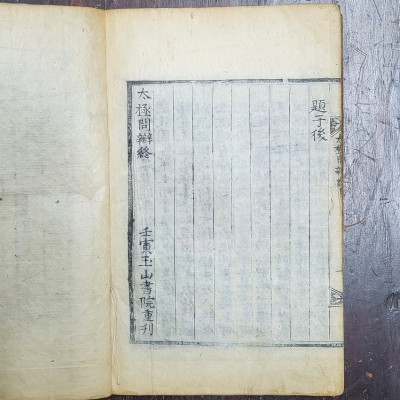 題子後
太極問辯終
壬寅玉山書院重刋